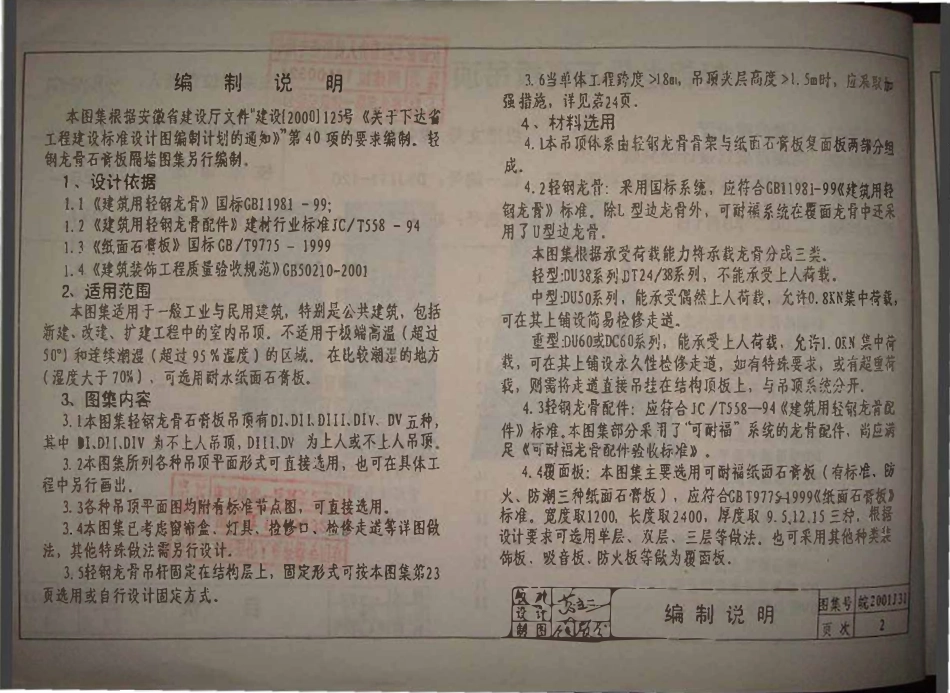 编 制 说 明
本图集根据安徽省建设厅文件"建设[2000]125号《关于下达省
工程建设标准设计图编制计划的通知》"第40项的要求编制。轻
钢龙骨石膏板隔墙图集另行编制。
1、设计依据
1.1《建筑用轻钢龙骨》国标GB11981-99;
1.2《建筑用轻钢龙骨配件》建材行业标准JC/T558-94
1.3《纸面石膏板》国标GB/T9775-1999
1.4《建筑装饰工程质量验收规范》GB50210-2001
2、适用范围
本图集适用于一般工业与民用建筑，特别是公共建筑，包括
新建、改建、扩建工程中的室内吊顶。不适用于极端高温（超过
50°）和连续潮湿（超过95%湿度）的区域。在比较潮湿的地方
（湿度大于70%），可选用耐水纸面石膏板。
3、图集内容
3.1本图集轻钢龙骨石膏板吊顶有DI、DII、DIII、DIV、DV五种，
其中DI、DII、DIV为不上人吊顶，DIII、DV 为上人或不上人吊顶。
3.2本图集所列各种吊顶平面形式可直接选用，也可在具体工
程中另行画出。
3.3各种吊顶平面图均附有标准节点图，可直接选用。
3.4本图集已考虑窗帘盒、灯具、检修口、检修走道等详图做
法，其他特殊做法需另行设计。
3.5轻钢龙骨吊杆固定在结构层上，固定形式可按本图集第23
页选用或自行设计固定方式。
3.6当单体工程跨度>18m，吊顶夹层高度>1.5m时，应采取加
强措施，详见第24页。
4、材料选用
4.1本吊顶体系由轻钢龙骨骨架与纸面石膏板复面板两部分组
成。
4.2轻钢龙骨：采用国标系统，应符合GB11981-99《建筑用轻
钢龙骨》标准。除L型边龙骨外，可耐福系统在覆面龙骨中还采
用了U型边龙骨。
本图集根据承受荷载能力将承载龙骨分成三类。
轻型:DU38系列DT24/38系列，不能承受上人荷载。
中型:DU50系列，能承受偶然上人荷载，允许0.8KN集中荷载，
可在其上铺设简易检修走道。
重型:DU60或DC60系列，能承受上人荷载，允许1.0KN集中荷
载，可在其上铺设永久性检修走道，如有特殊要求，或有超重荷
载，则需将走道直接吊挂在结构顶板上，与吊顶系统分开。
4.3轻钢龙骨配件：应符合JC/T558—94《建筑用轻钢龙骨配
件》标准。本图集部分采用了"可耐福"系统的龙骨配件，尚应满
足《可耐福龙骨配件验收标准》。
4.4覆面板：本图集主要选用可耐福纸面石膏板（有标准、防
火、防潮三种纸面石膏板），应符合GBT9775-1999《纸面石膏板》
标准。宽度取1200，长度取2400，厚度取 9.5、12、15三种，根据
设计要求可选用单层、双层、三层等做法。也可采用其他种类装
饰板、吸音板、防火板等做为覆面板。
校对
设计
制图
编制说明
图集号 皖2001J31
页次 2